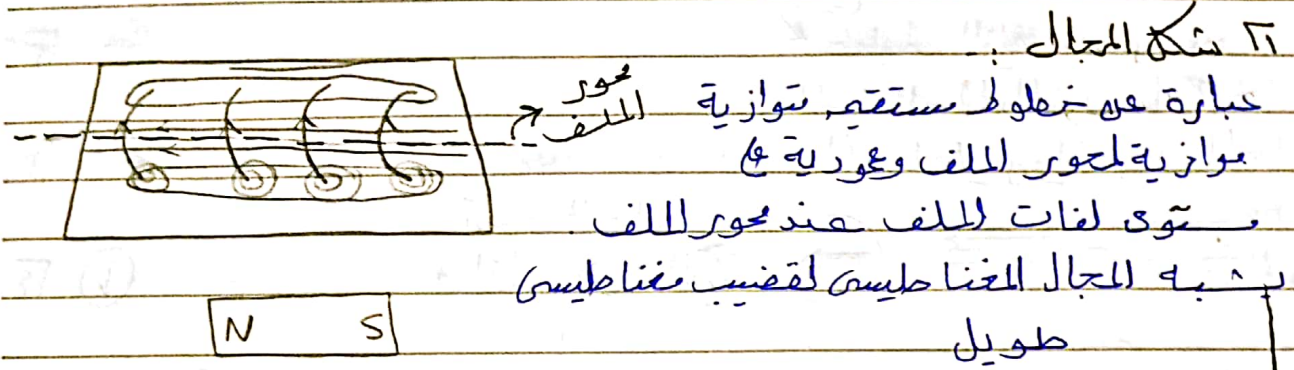 ٢] شكل المجال :-
عبارة عن خطوط مستقيمه متوازية
محور
الملف
موازية لمحور الملف وعمودية على
مستوى لفات الملف عند محور الملف .
يشبه المجال المغناطيسى لقضيب مغناطيسى
N S
طويل